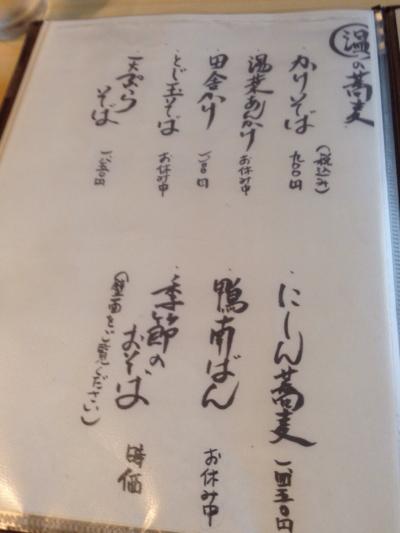 温の蕎麦
かけそば
(税込み)
九〇〇円
温菜あんかけ
お休み中
田舎かけ
とじ玉そば
お休み中
天ぷら
そば
にしん蕎麦
一四五〇円
鴨南ばん
お休み中
季節の
おそば
(壁面をご覧ください)
時価